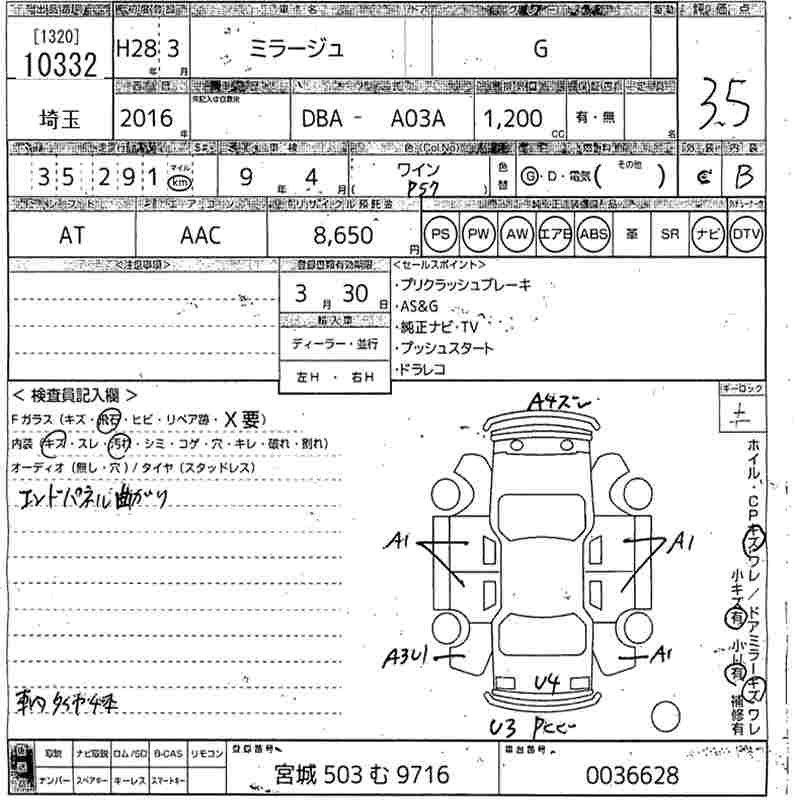 [1320]
10332
H28 年 3 月
ミラージュ
G
評価点
3.5
埼玉
2016 年
DBA - A03A
1,200 CC
有・無
名
35,291 マイル km
9 年 4 月
色(Col.No)
ワイン
P57
色替
G・D・電気( その他 )
内装
C
B
シフト
エアコン
リサイクル預託金
AT
AAC
8,650 円
PS PW AW エアB ABS 革 SR ナビ DTV
<注意事項>
登録書類有効期限
3 月 30 日
輸入車
ディーラー・並行
左H ・ 右H
<セールスポイント>
・プリクラッシュブレーキ
・AS&G
・純正ナビ・TV
・プッシュスタート
・ドラレコ
< 検査員記入欄 >
Fガラス (キズ・飛石・ヒビ・リペア跡・X要)
内装 (キズ・スレ・汚れ・シミ・コゲ・穴・キレ・破れ・割れ)
オーディオ (無し・穴) / タイヤ (スタッドレス)
エンドパネル曲がり
車内タイヤ4本
キーロック
A4ズレ
A1
A1
A3U1
A1
U4
U3
ホイル・CPキズワレ/ドアミラーキズワレ
小キズ有 小U有 補修有
取説 ナビ取説 ロム/SD B-CAS リモコン
ナンバー スペアキー キーレス スマートキー
登録番号
宮城 503 む 9716
車台番号
0036628